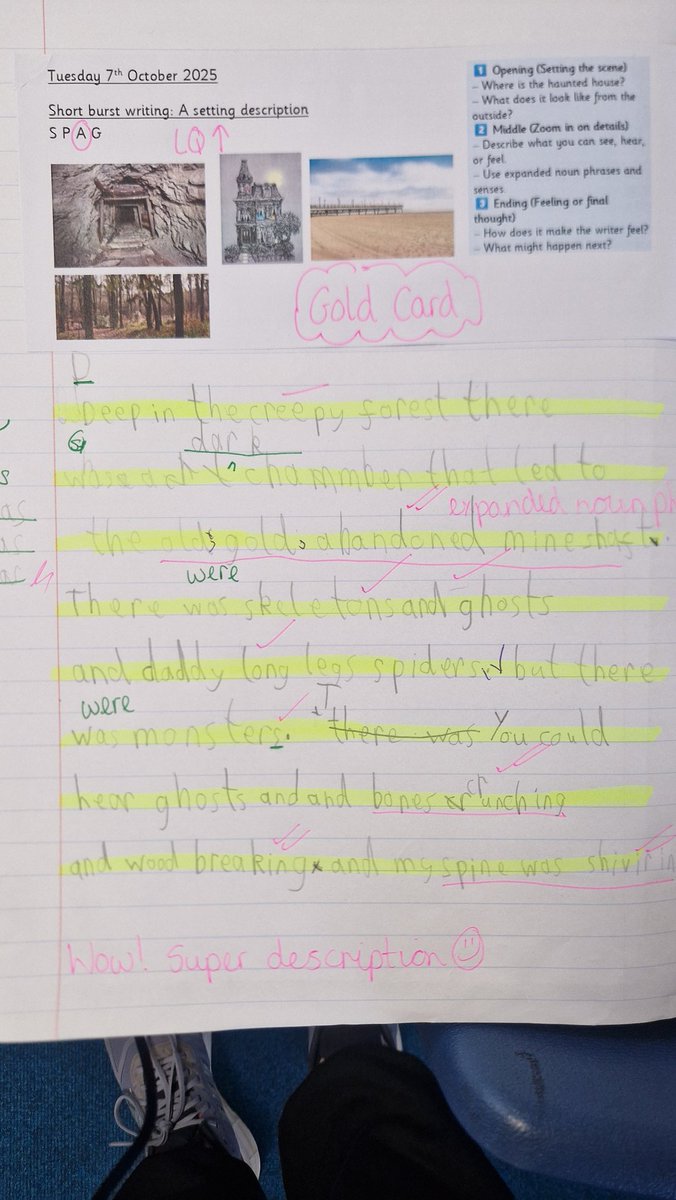 Tuesday 7th October 2025
Short burst writing: A setting description
S P A G
LQ ↑
1 Opening (Setting the scene)
– Where is the haunted house?
– What does it look like from the
outside?
2 Middle (Zoom in on details)
– Describe what you can see, hear,
or feel.
– Use expanded noun phrases and
senses.
3 Ending (Feeling or final
thought)
– How does it make the writer feel?
– What might happen next?
Gold Card
D
Deep in the creepy forest there
dark
was a chammber that led to
expanded noun ph
the old, gold, abandoned mineshaft.
were
There was skeletons and ghosts
and daddy long legs spiders, but there
were T
was monsters. there was You could
ch
hear ghosts and and bones crunching
and wood breaking and my spine was shivirin
Wow! Super description